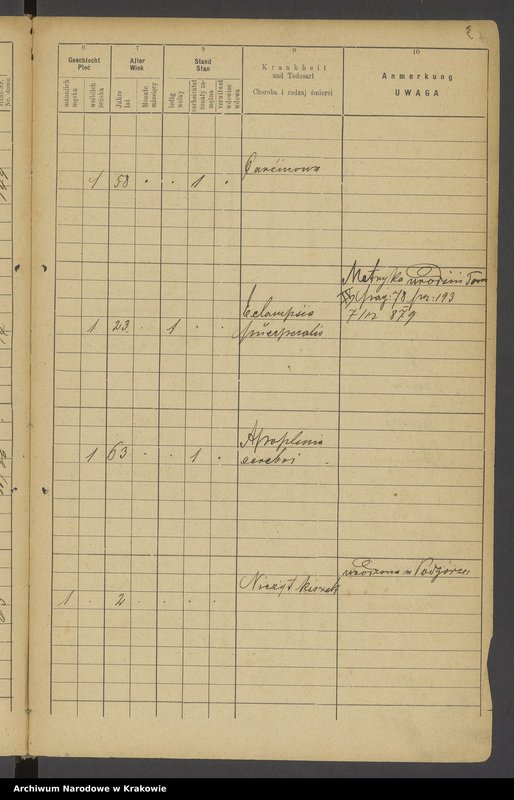 6 7 8 9 10
Geschlecht
Płeć
Alter
Wiek
Stand
Stan
Krankheit
und Todesart
Choroba i rodzaj śmierci
Anmerkung
UWAGA
männlich
męska
weiblich
żeńska
Jahre
lat
Monate
miesięcy
ledig
wolny
verheiratet
żonaty za-
mężna
verwitwet
wdowiec
wdowa
Carcinoma
1 58 . . 1 .
Metryka urodzin Tom
pag: 78 poz: 193
879
Eclampsia
1 23 . 1 . .
puerperalis
Apoplexia
1 63 . . 1 .
cerebri
urodzona w Podgórzu
Nieżyt kiszek
1 . 2 . . . .
Archiwum Narodowe w Krakowie